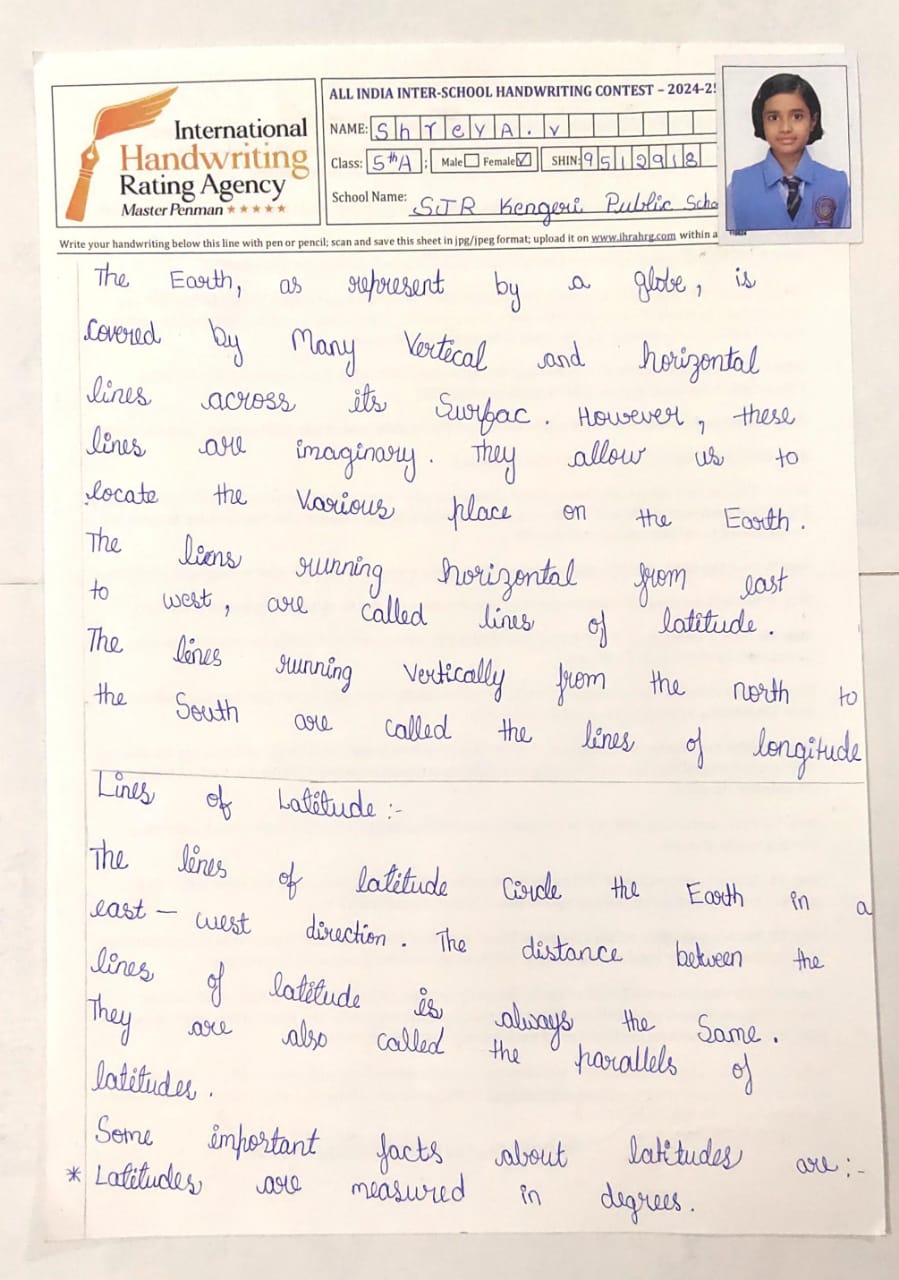 International
Handwriting
Rating Agency
Master Penman ★★★★★
ALL INDIA INTER-SCHOOL HANDWRITING CONTEST – 2024-25
NAME: ShreyA.v
Class: 5th A : Male Female ✓ SHIN: 9512918
School Name: SJR Kengeri Public Scho
Write your handwriting below this line with pen or pencil; scan and save this sheet in jpg/jpeg format; upload it on www.ihrahrg.com within a
The Earth, as represent by a globe, is
Covered by Many Vertical and horizontal
lines across its Surfac. However, these
lines are imaginary. They allow us to
locate the Various place on the Earth.
The liens running horizontal from east
to west, are called lines of latitude.
The lines running Vertically from the north to
the South are called the lines of longitude
Lines of Latitude :-
The lines of latitude Circle the Earth in a
east – west direction. The distance between the
lines of latitude is always the Same.
They are also called the parallels of
latitudes.
Some important facts about latitudes are :-
* Latitudes are measured in degrees.